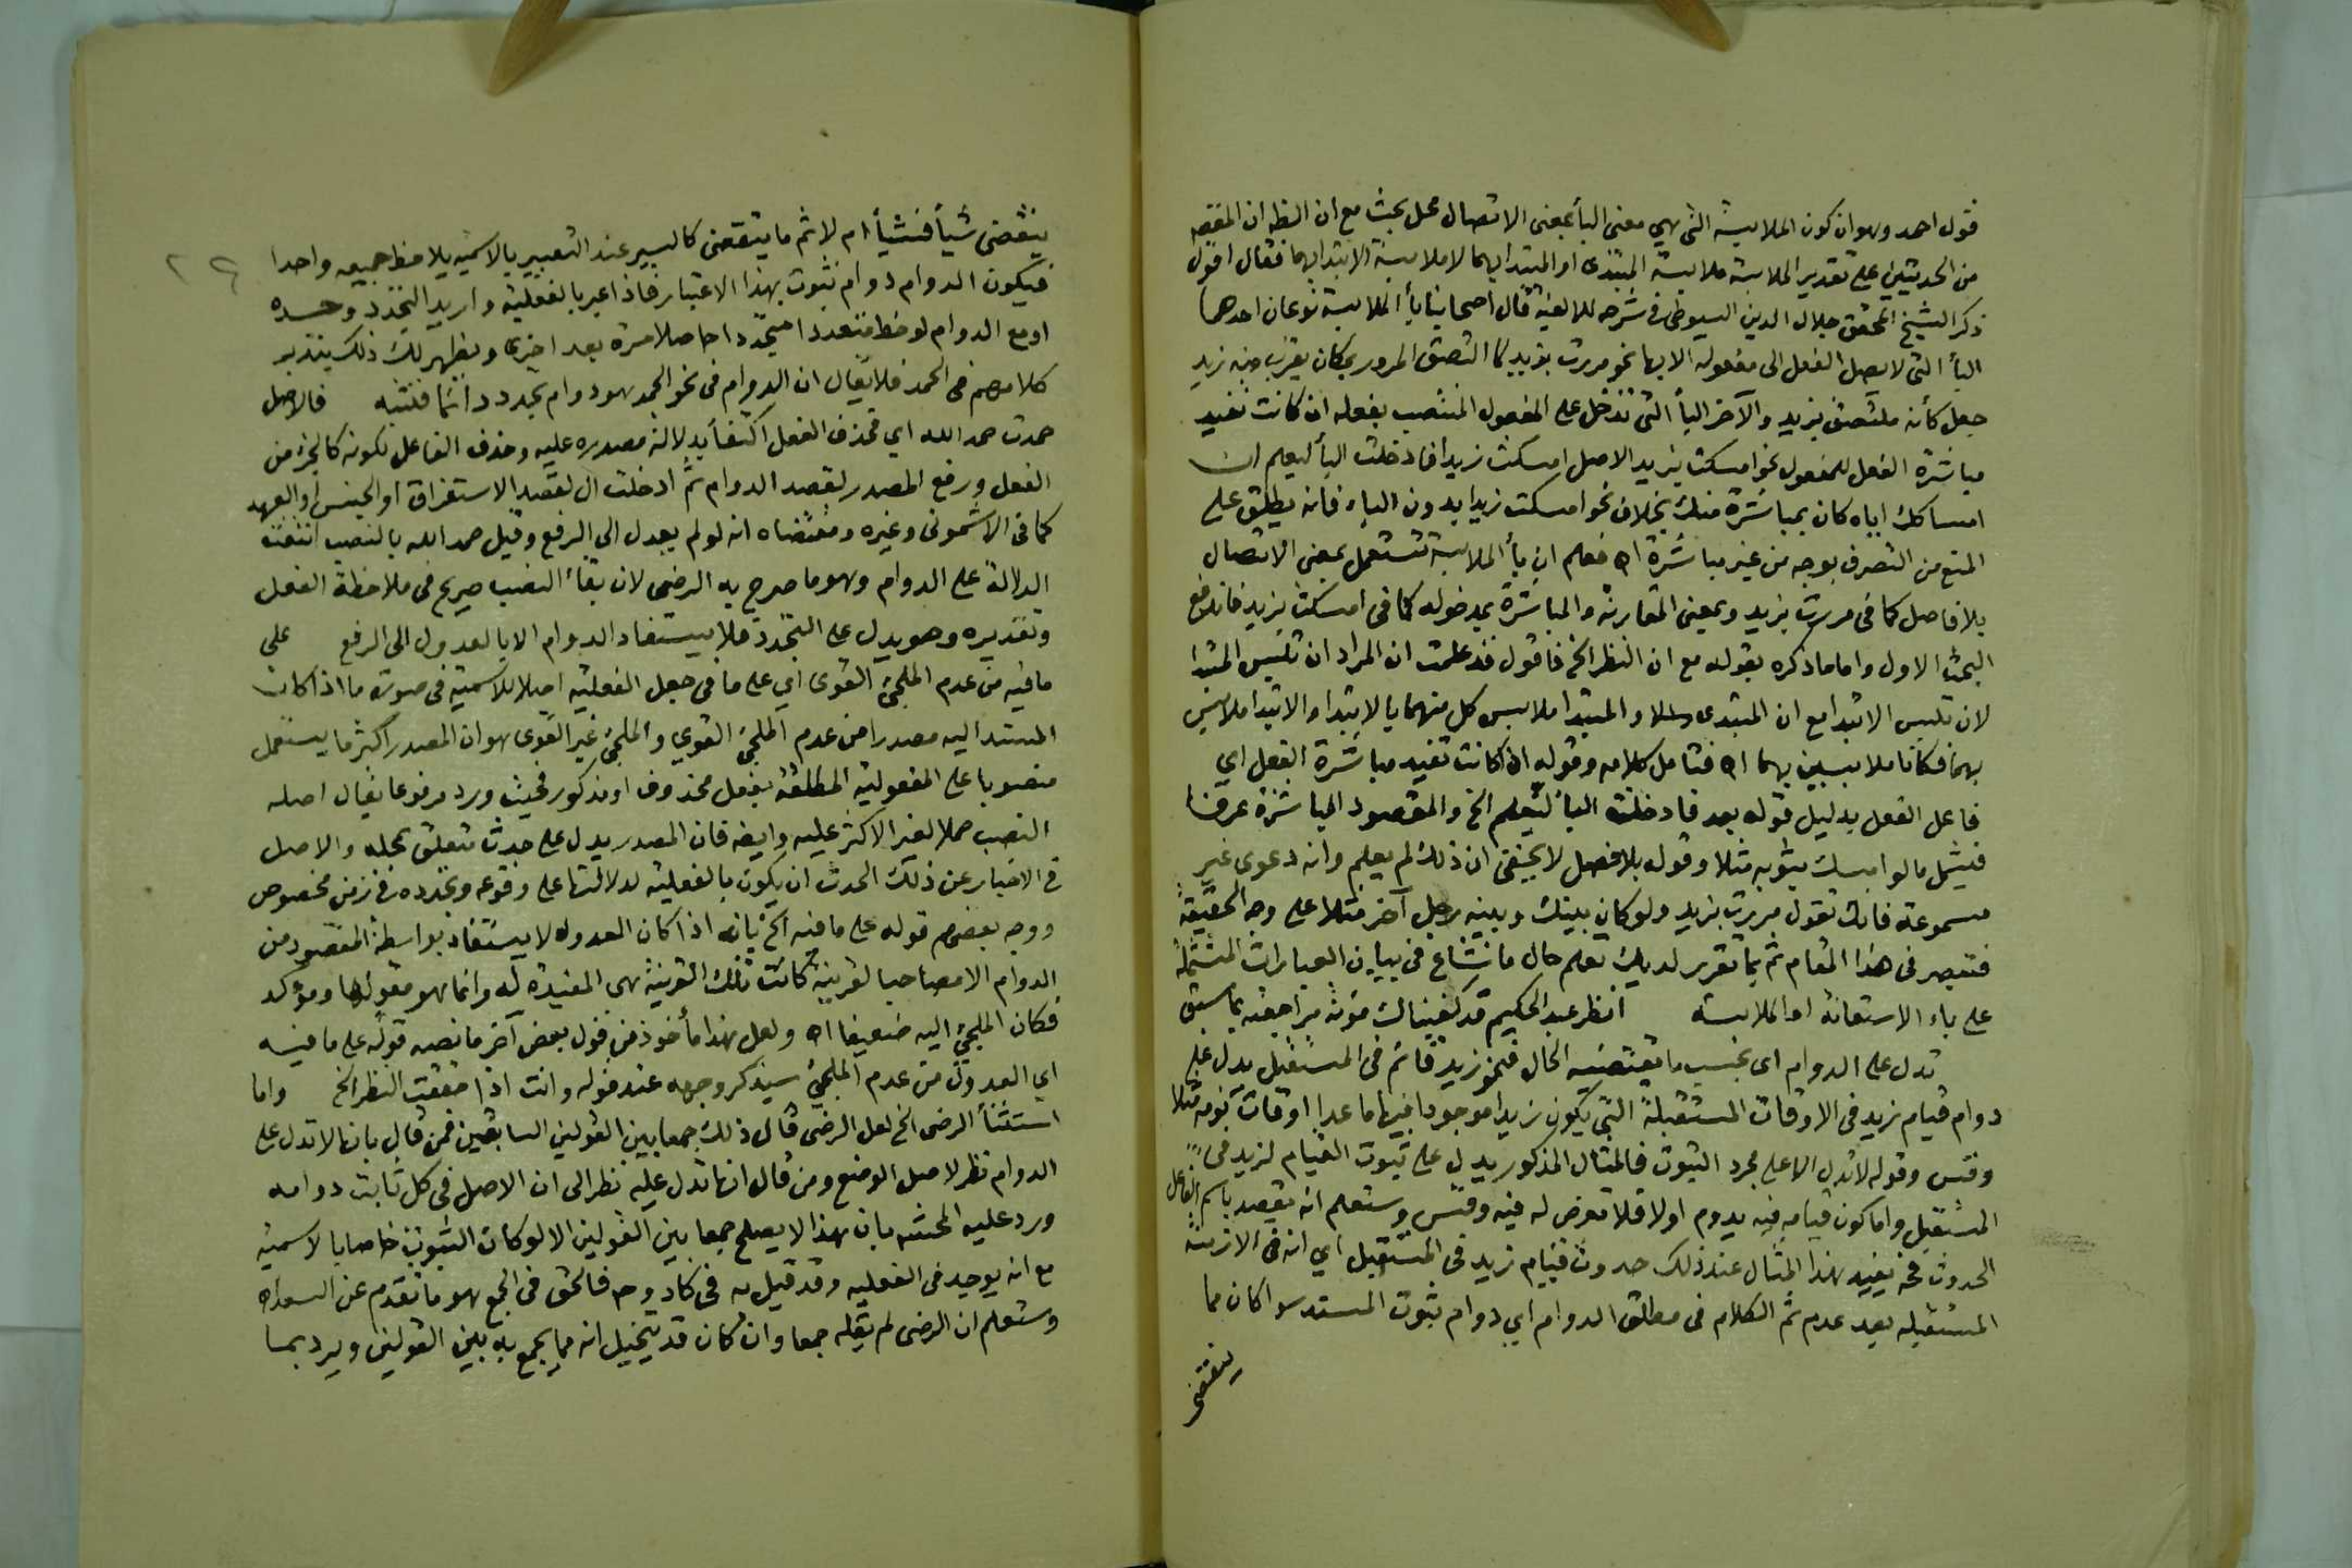 قول احمد وهو ان كون الملابسة التى هي معنى البأ بمعنى الاتصال محل بحث مع ان النظ ان المقص
من الحديثين على تقدير الملابسة ملابسة المبتدى او المبتدا بهما لا ملابسة الابتدا بهما فقال اقول
ذكر الشيخ المحقق جلال الدين السيوطى فى شرحه للالفية قال اصحابنا بأ الملابسة نوعان احدهما
البأ التى لا يصل الفعل الى مفعوله الا بها نحو مررت بزيد لما التصق المرور بمكان يقرب منه زيد
جعل كأنه ملتصق بزيد والآخر البأ التى تدخل على المفعول المنتصب بفعله اذ كانت تفيد
مباشرة الفعل للمفعول نحو امسكت بزيد الاصل امسكت زيدا فادخلت البأ ليعلم ان
امساكك اياه كان بمباشرة منك بخلاف نحو امسكت زيدا بدون الباء فانه يطلق على
المنع من التصرف بوجه من غير مباشرة اه فعلم ان بأ الملابسة تستعمل بمعنى الاتصال
بلا فاصل كما فى مررت بزيد وبمعنى المقارنة والمباشرة بمدخوله كما فى امسكت بزيد فاندفع
البحث الاول واما ما ذكره بقوله مع ان النظر الخ فاقول قد علمت ان المراد ان تلبس المبتدا
لان تلبس الابتدا مع ان المبتدى والمبتدا ملابس كل منهما بالابتدا والابتدا ملابس
بهما فكانا ملابسين بهما اه فتامل كلامه وقوله اذ كانت تفيد مباشرة الفعل اي
فاعل الفعل بدليل قوله بعد فادخلت البأ ليعلم الخ والمقصود المباشرة عرفا
فيشمل ما لو امسك بثوبه مثلا وقوله بلا فصل لا يخفى ان ذلك لم يعلم وانه دعوى غير
مسموعة فانك تقول مررت بزيد ولو كان بينك وبينه رجل آخر مثلا على وجه الحقيقة
فتبصر فى هذا المقام ثم بما تقرر لديك تعلم حال ما شاع فى بيان العبارات المشتملة
على باء الاستعانة او الملابسة انظر عبد الحكيم قد كفيناك مؤنة مراجعته بما سبق
تدل على الدوام اى بحسب ما يقتضيه الحال فنحو زيد قائم فى المستقبل يدل على
دوام قيام زيد فى الاوقات المستقبلة التى يكون زيد موجودا فيها ما عدا اوقات نومه مثلا
وقس وقوله لا تدل الا على مجرد الثبوت فالمثال المذكور يدل على ثبوت القيام لزيد فى
المستقبل واما كون قيامه فيه يدوم اولا فلا تعرض له فيه وقس وستعلم انه يقصد باسم الفاعل
الحدوث فح يفيد هذا المثال عند ذلك حدوث قيام زيد فى المستقبل اي انه فى الازمنة
المستقبله بعد عدم ثم الكلام فى مطلق الدوام اي دوام ثبوت المسند سوا كان مما
ينقضى
ينقضى شيأ فشيأ ام لا ثم ما ينقضى كالسير عند التعبير بالاسمية يلاحظ جميعه واحدا
فيكون الدوام دوام ثبوت بهذا الاعتبار فاذا عبر بالفعلية واريد التجدد وحده
او مع الدوام لوحظ متعددا متجددا حاصلا مرة بعد اخرى ويظهر لك ذلك بتدبر
كلامهم فى الحمد فلا يقال ان الدوام فى نحو الحمد هو دوام تجدد دائما فتنبه فالاصل
حمدت حمد الله اي فحذف الفعل اكتفأ بدلالة مصدره عليه وحذف الفاعل لكونه كالجزء من
الفعل ورفع المصدر لقصد الدوام ثم ادخلت ال لقصد الاستغراق او الجنس او العهد
كما فى الاشمونى وغيره ومقتضاه انه لو لم يعدل الى الرفع وقيل حمد الله بالنصب انتفت
الدلالة على الدوام وهو ما صرح به الرضى لان بقأ النصب صريح فى ملاحظة الفعل
وتقديره وهو يدل على التجدد فلا يستفاد الدوام الا بالعدول الى الرفع على
ما فيه من عدم الملجئ القوى اي على ما فى جعل الفعلية اصلا للاسمية فى صورة ما اذا كان
المسند اليه مصدرا من عدم الملجئ القوي والملجئ غير القوى هو ان المصدر اكثر ما يستعمل
منصوبا على المفعولية المطلقة بفعل محذوف او مذكور فحيث ورد مرفوعا يقال اصله
النصب حملا لغير الاكثر عليه وايضه فان المصدر يدل على حدث متعلق بمحله والاصل
فى الاخبار عن ذلك الحدث ان يكون بالفعلية لدلالتها على وقوعه وتجدده فى زمن مخصوص
ووجه بعضهم قوله على ما فيه الخ بانه اذا كان العدول لا يستفاد بواسطة المقصود من
الدوام الا مصاحبا لقرينة كانت تلك القرينة هى المفيدة له وانما هو مقولها ومؤكد
فكان الملجئ اليه ضعيفا اه ولعل هذا مأخوذ من قول بعض آخر ما نصه قوله على ما فيه
اي العدول من عدم الملجئ سيذكر وجهه عند قوله وانت اذا حققت النظر الخ واما
استثنأ الرضى الخ لعل الرضى قال ذلك جمعا بين القولين السابقين فمن قال بانها لا تدل على
الدوام نظر لاصل الوضع ومن قال انها تدل عليه نظر الى ان الاصل فى كل ثابت دوامه
ورد عليه المحشى بان هذا لا يصلح جمعا بين القولين الا لو كان الثبوت خاصا بالاسمية
مع انه يوجد فى الفعليه وقد قيل به فى كاد وح فالحق فى الجمع هو ما تقدم عن السعد اه
وستعلم ان الرضى لم يقله جمعا وان كان قد يتخيل انه مما يجمع به بين القولين ويرد بما